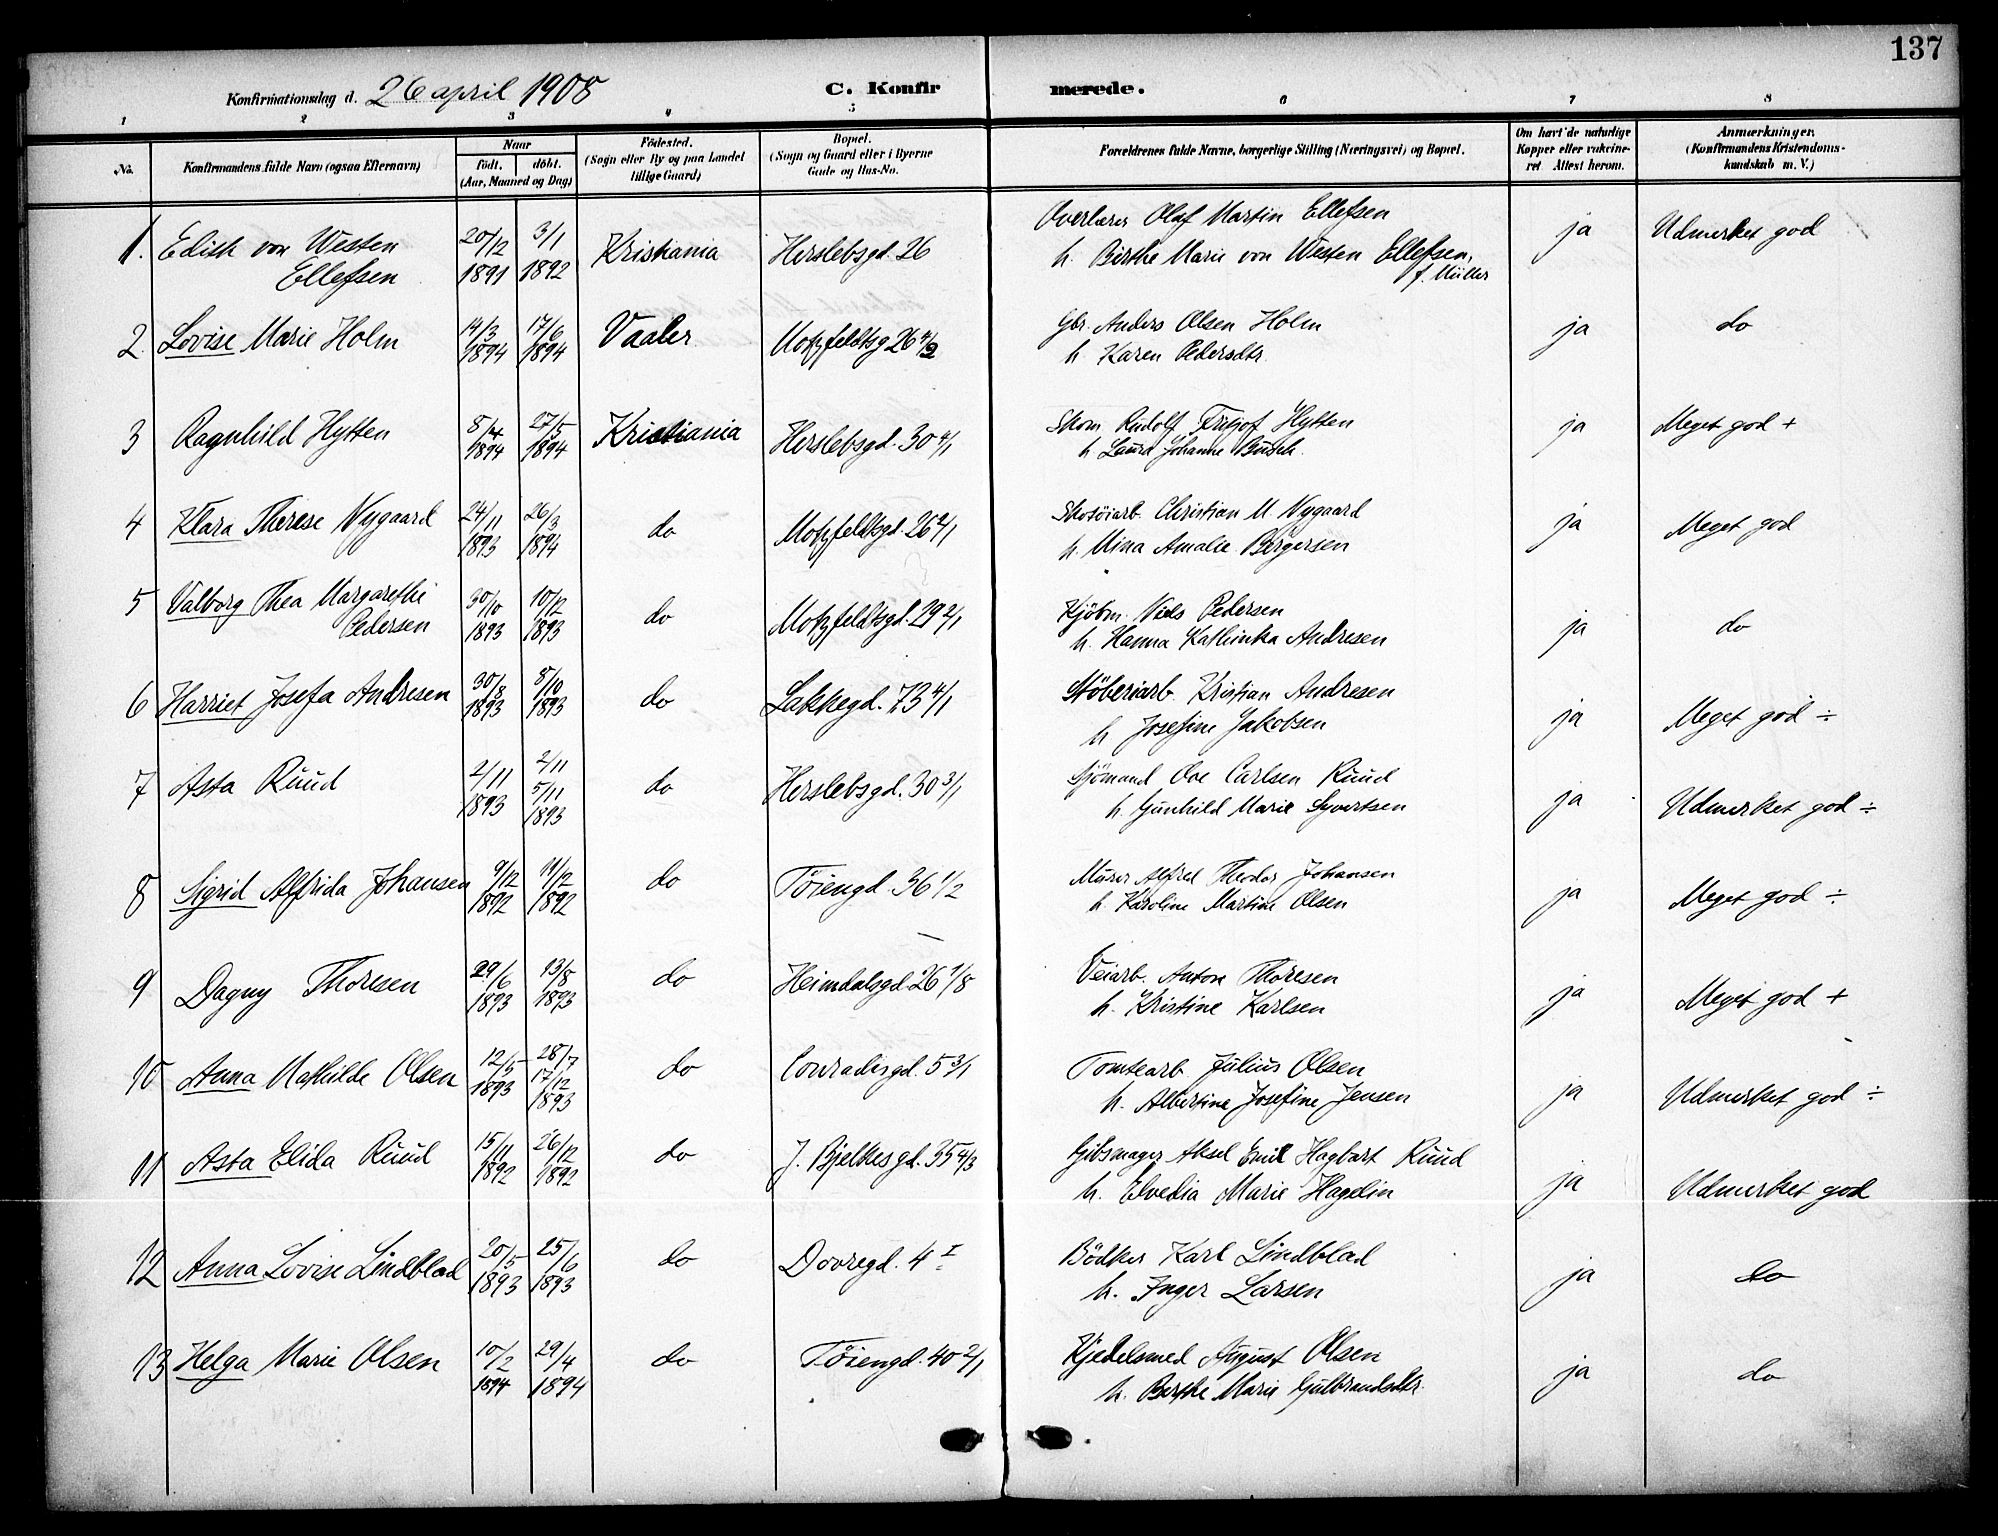 137
Konfirmationsdag d. 26 april 1908
C. Konfirmerede.
1 2 3 4 5 6 7 8
No.
Konfirmandens fulde Navn (ogsaa Efternavn)
Naar
födt. döbt.
(Aar, Maaned og Dag)
Födested.
(Sogn eller By og paa Landet
tillige Gaard)
Bopæl.
(Sogn og Gaard eller i Byerne
Gade og Hus-No.
Forældrenes fulde Navne, borgerlige Stilling (Næringsvei) og Bopæl.
Om havt de naturlige
Kopper eller vakcine-
ret Attest herom.
Anmærkninger.
(Konfirmandens Kristendoms-
kundskab m. V.)
1. Edith von Westen 20/12 3/1 Kristiania Herslebsgd. 26 Overlærer Olaf Martin Ellefsen ja Udmerket god
Ellefsen 1891 1892 h. Birthe Marie von Westen Ellefsen,
f. Müller
2. Lovise Marie Holm 14/3 17/6 Vaaler Motzfeldtsg 26 4/2 Gbr. Anders Olsen Holm ja do
1894 1894 h. Karen Pedersdtr.
3 Ragnhild Hytten 8/4 27/5 Kristiania Herslebsgd. 30 4/1 Skom. Rudolf Fritjof Hytten ja Meget god +
1894 1894 h. Laura Johanne Busch.
4 Klara Therese Nygaard 24/11 26/3 do Motzfeldtsgd. 26 2/1 Skotöiarb. Christian M. Nygaard ja Meget god
1893 1894 h. Mina Amalie Borgersen
5 Valborg Thea Margarethe 30/10 10/12 do Motzfeldtsgd. 29 2/1 Kjöbm. Niels Pedersen ja do
Pedersen 1893 1893 h. Hanna Kathinka Andresen
6 Harriet Josefa Andresen 30/8 8/10 do Lakkegd. 73 4/1 Stöberiarb. Kristian Andresen ja Meget god ÷
1893 1893 h. Josefine Jakobsen
7 Asta Ruud 2/11 2/11 do Herslebsgd. 30 3/1 Sjömand Ove Carlsen Ruud ja Udmerket god ÷
1893 5/11 1893 h. Gunhild Marie Syvertsen
8 Sigrid Alfrida Johansen 9/12 11/12 do Töiengd. 36 1/2 Murer Alfred Theodor Johansen ja Meget god ÷
1892 1892 h. Karoline Martine Olsen
9 Dagny Thoresen 29/6 13/8 do Heimdalsgd. 26 1/8 Veiarb. Anton Thoresen ja Meget god +
1893 1893 h. Kristine Karlsen
10 Anna Mathilde Olsen 12/5 28/7 do Conradisgd. 5 3/1 Tomtearb. Julius Olsen ja Udmerket god ÷
1893 17/12 1893 h. Albertine Josefine Jensen
11 Asta Elida Ruud 15/11 26/12 do J. Bjelkesgd. 35 4/3 Gibsmager Aksel Emil Hagbart Ruud ja Udmerket god
1892 1892 h. Elvedia Marie Hagelin
12 Anna Lovise Lindblad 20/5 25/6 do Dovregd. 4 I Bödker Karl Lindblad ja do
1893 1893 h. Inger Larsen
13 Helga Marie Olsen 10/2 29/4 do Töiengd. 40 2/1 Kjedelsmed August Olsen ja do
1894 1894 h. Berthe Marie Gulbrandsdtr.